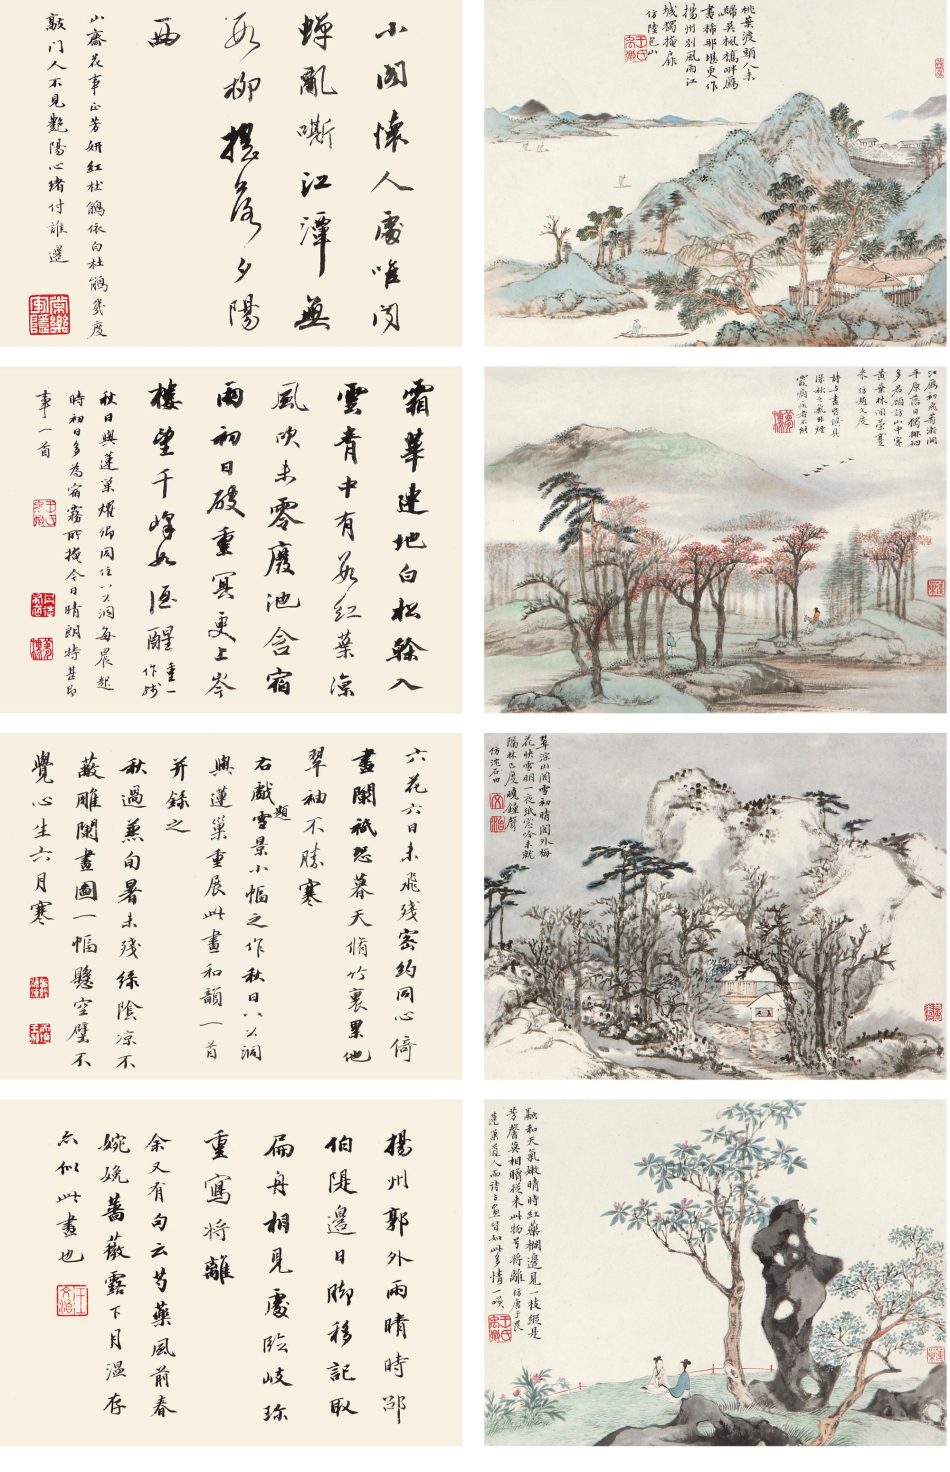 桃葉渡頭人未
歸吳楓橋畔鴈
書稀那堪更作
揚州別風雨江
城獨掩扉
仿陸包山
小閣懷人處唯聞
蟬亂嘶江潭無
數柳搖落夕陽
西
山齋花事正芳妍紅杜鵑依白杜鵑幾度
敲門人不見艷陽心緒付誰邊
江鴈初飛菊漸開
平原落日獨徘徊
多君顧訪山中客
黃葉林間策蹇
來仿趙文度
詩与畫皆淡具
深秋之氣非煙
霞痼疾者不能
霜華連地白松翰入
雲青中有數紅葉涼
風吹未零廢池含宿
雨初日破重冥更上岑
樓望千峰如酒醒
秋日與蓮巢燿卿同住八公洞每晨起
時初日多為宿霧所掩今日晴朗特甚即
事一首
翠淙山閣雪初晴閣外梅
花映雪明一夜紙窓吟未就
隔林已度曉鐘聲
仿沈石田
六花六日未飛殘密約同心倚
畫闌祇恐暮天脩竹裏單他
翠袖不勝寒
右戲題雪景小幅之作秋日八公洞
與蓮巢重展此畫和韻一首
并錄之
秋過兼旬暑未殘綠陰凉不
蔽雕闌畫圖一幅懸空壁不
覺心生六月寒
融和天氣嫩晴時紅藥欄邊見一枝縱是
芳馨莫相贈從来此物号將離仿唐子畏
蓮巢道人而詩与画皆如此多情一嘆
揚州郭外雨晴時邵
伯隄邊日脚移記取
扁舟相見處臨岐珎
重寫將離
余又有句云芍藥風前春
婉娩薔薇露下月温存
亦似此畫也